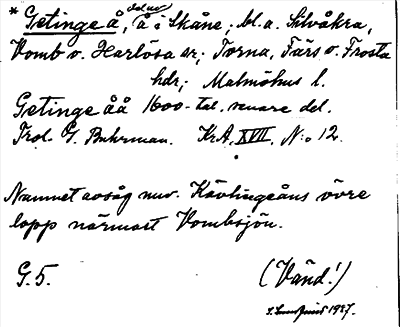 * Getinge å, delvis å i Skåne; bl. a. Silvåkra,
Vomb o. Harlösa sr; Torna, Färs o. Frosta
hdr; Malmöhus l.
Getinge åå 1600-tal. senare del.
Trol. G. Buhrman. KrA, XVII, N:o 12.
Namnet avsåg nuv. Kävlingeåns övre
lopp närmast Vombsjön.
G. 5.
(Vänd!)
1927.